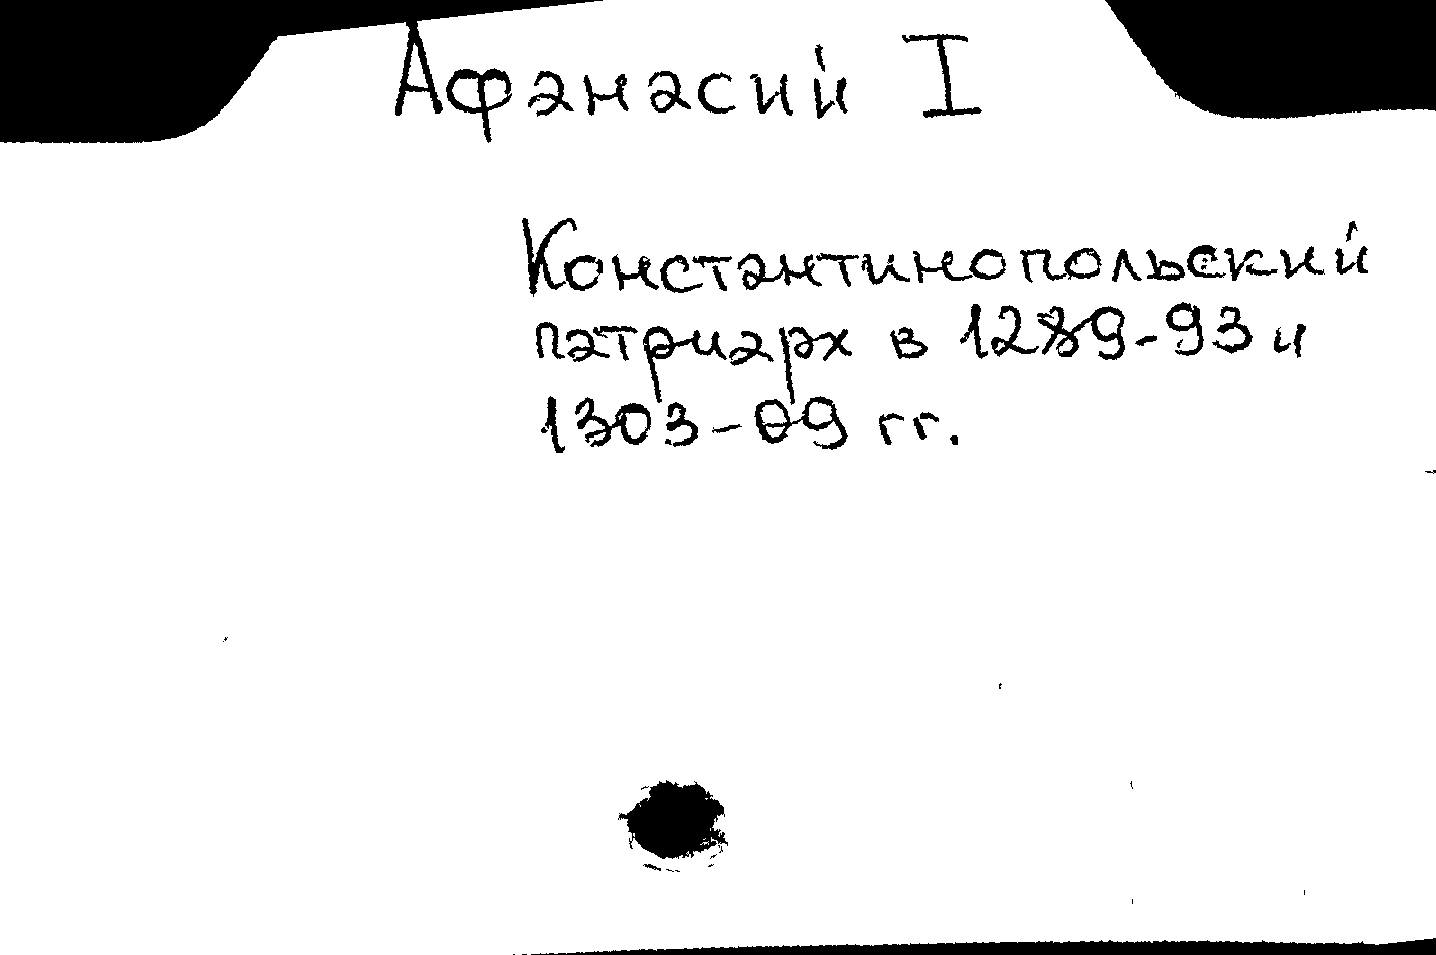 Афанасий I
Константинопольский
патриарх в 1289-93 и
1303-09 гг.